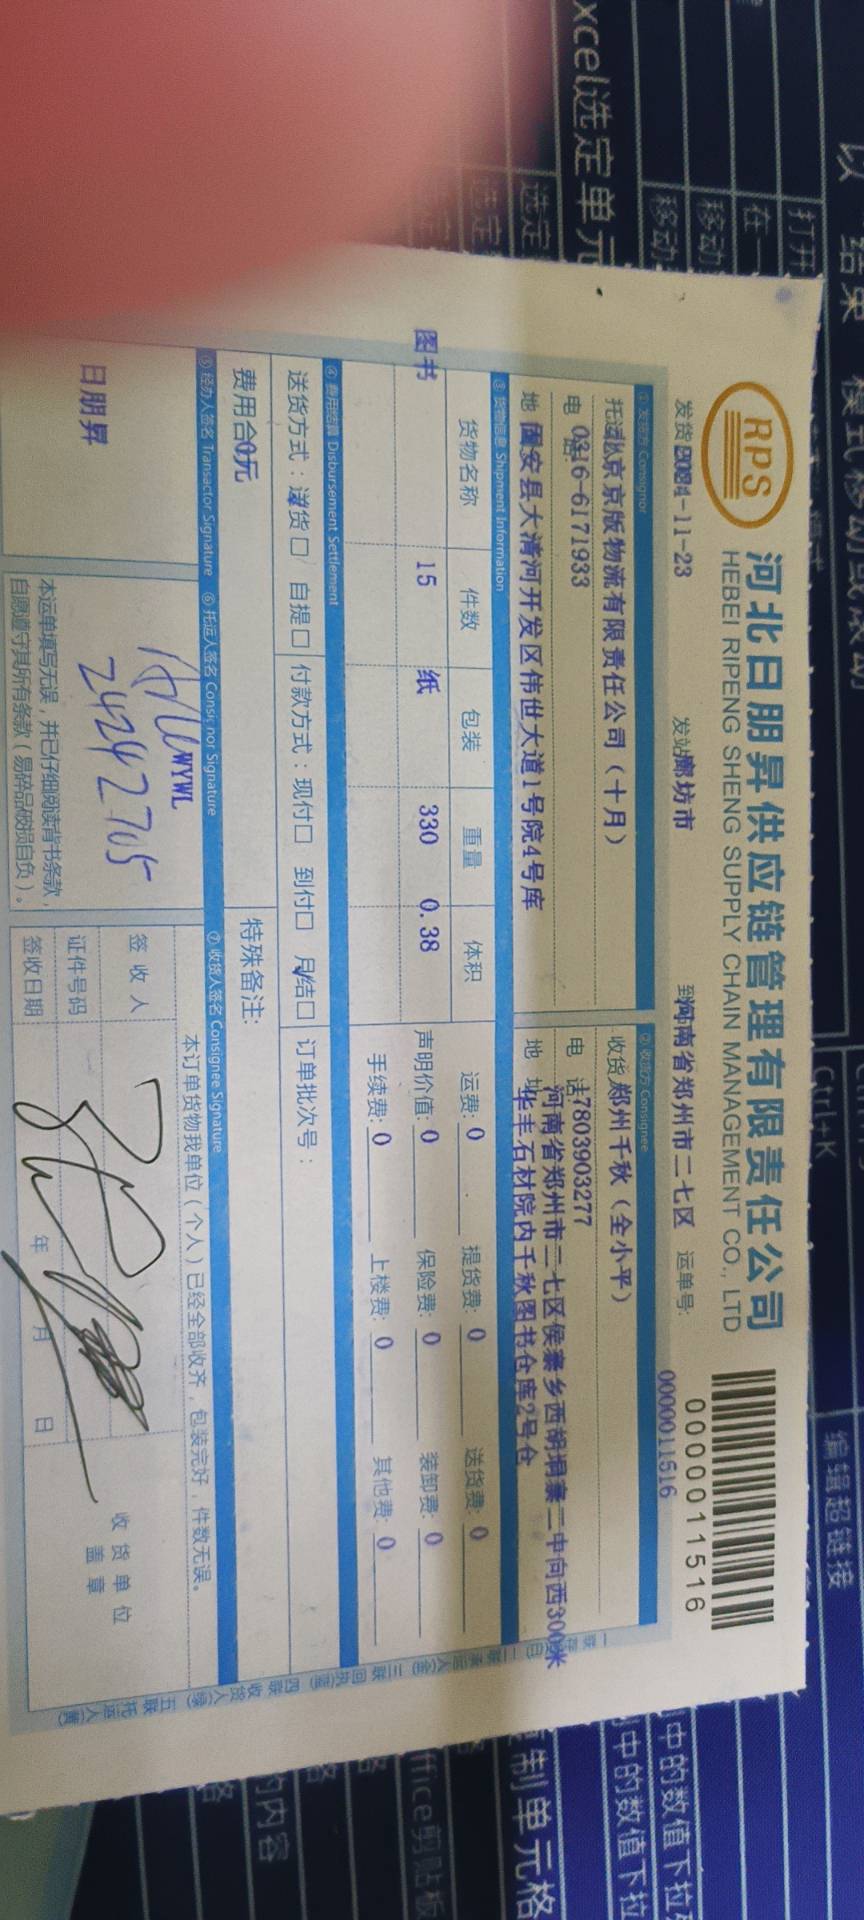 RPS
河北日朋昇供应链管理有限责任公司
HEBEI RIPENG SHENG SUPPLY CHAIN MANAGEMENT CO., LTD
0000011516
发货 2024-11-23 发站 廊坊市 到 河南省郑州市二七区 运单号: 0000011516
① 发货方 Consignor
托运 北京京版物流有限责任公司（十月）
电话: 0316-6171933
地 固安县大清河开发区伟世大道1号院4号库
② 收货方 Consignee
收货 郑州千秋（全小平）
电 话 17803903277
地 址 河南省郑州市二七区侯寨乡西胡垌寨二中向西300米
华丰石材院内千秋图书仓库2号仓
③ 货物信息 Shipment Information
货物名称 件数 包装 重量 体积
图书 15 纸 330 0.38
运费: 0 提货费: 0 送货费: 0
声明价值: 0 保险费: 0 装卸费: 0
手续费: 0 上楼费: 0 其他费: 0
④ 费用结算 Disbursement Settlement
送货方式：送货□ 自提□ 付款方式：现付□ 到付□ 月结□ 订单批次号：
费用合 0元 特殊备注:
⑤ 经办人签名 Transactor Signature ⑥ 托运人签名 Consignor Signature ⑦ 收货人签名 Consignee Signature
日朋昇
WYWL
24242705
本运单填写无误，并已仔细阅读背书条款，
自愿遵守其所有条款（易碎品破损自负）。
本订单货物我单位（个人）已经全部收齐，包装完好，件数无误。
签 收 人
证件号码
签收日期 年 月 日
收 货 单 位
盖 章
三联 回执(蓝) 四联 收货人(绿) 五联 托运人(黄)
Excel选定单元
Ctrl+K
编辑超链接
制单元格
中的数值下拉
中的数值下拉
ffice剪贴板
的内容
打开
在一
移动
移动
选定
选定
以
结束
模式移动或滚动